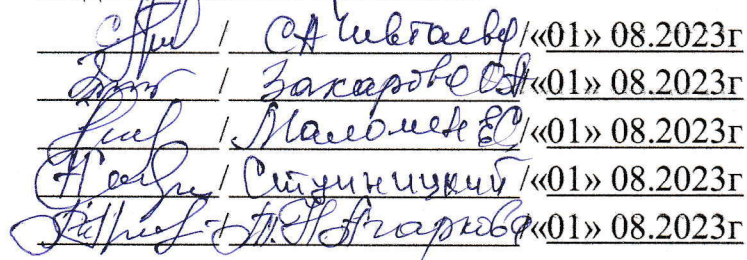 / СА Чивтаева /«01» 08.2023г
/ Захарова ОА «01» 08.2023г
/ Маломен ЕС /«01» 08.2023г
/ Ступницкий /«01» 08.2023г
/ А.Н Агаркова «01» 08.2023г